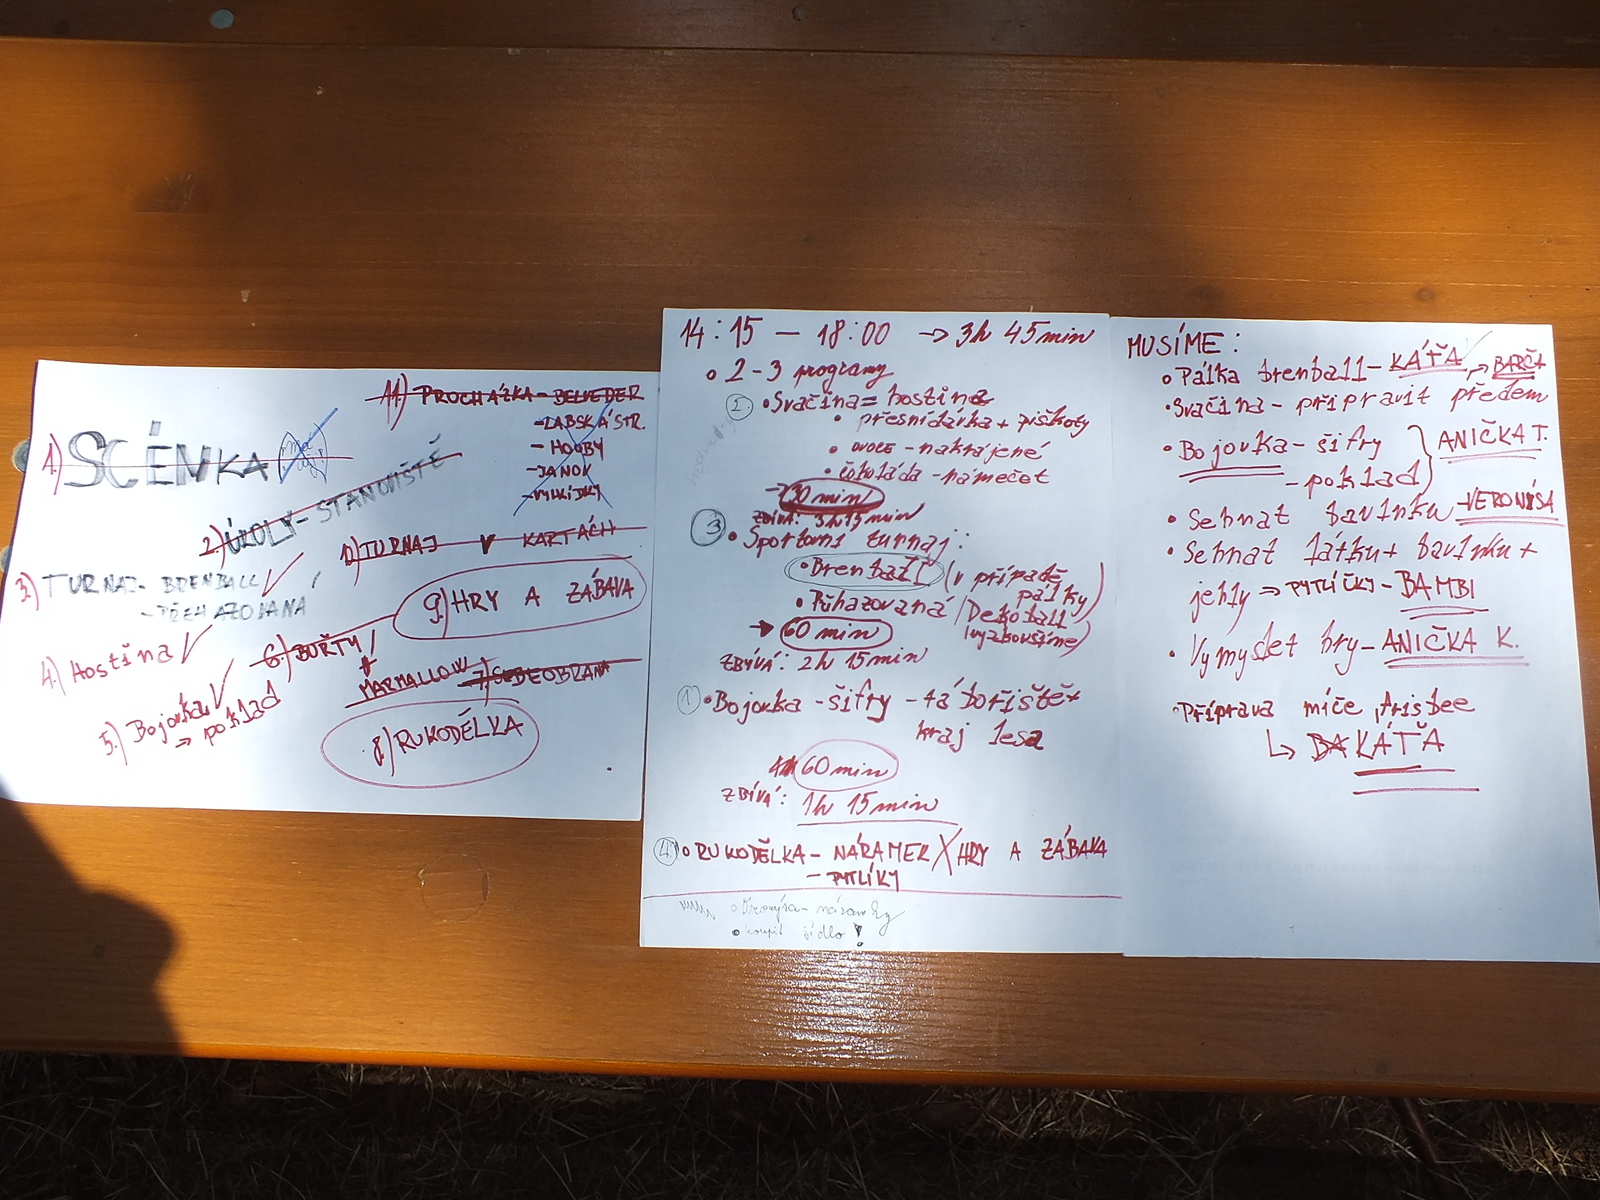 11.) PROCHÁZKA - BELVEDER
- LABSKÁ STR.
- HOUBY
- JANOK
- VYKLÍDKY
1.) SCÉNKA
2.) ÚKOLY - STANOVIŠTĚ
10.) TURNAJ V KARTÁCH
3.) TURNAJ - BRENBALL
- PŘEHAZOVANÁ
9.) HRY A ZÁBAVA
4.) Hostina
6.) BUŘTY
+
MARMALLOW
7.) SEBEOBRANA
5.) Bojovka
⇒ poklad
8.) RUKODĚLKA
14:15 — 18:00 → 3h 45min
• 2-3 programy
2. • Svačina = hostina
• přesnídávka + piškoty
• OVOCE - nakrájené
• čokoláda - namáčet
→ 30 min
ZBÍVÁ: 3h 15min
3 • Sportovní turnaj:
• Brenball (v případě pálky)
• Přehazovaná (Dekoball vyzkoušíme)
→ 60 min
ZBÝVÁ: 2h 15min
1. • Bojovka - šifry - tábořiště +
kraj lesa
60 min
ZBÍVÁ: 1h 15min
4. • RUKODĚLKA - NÁRAMEK X HRY A ZÁBAVA
- PYTLÍKY
• Veronýsa - náramky
• koupit šídlo!
MUSÍME:
• Pálka brenball - KÁŤA
• Svačina - připravit předem → BARČA
• Bojovka - šifry
- poklad } ANIČKA T.
• Sehnat bavlnku - VERONÝSA
• Sehnat látku + bavlnku +
jehly ⇒ PYTLÍČKY - BAMBI
• Vymyslet hry - ANIČKA K.
• Příprava míče, frisbee
↳ KÁŤA